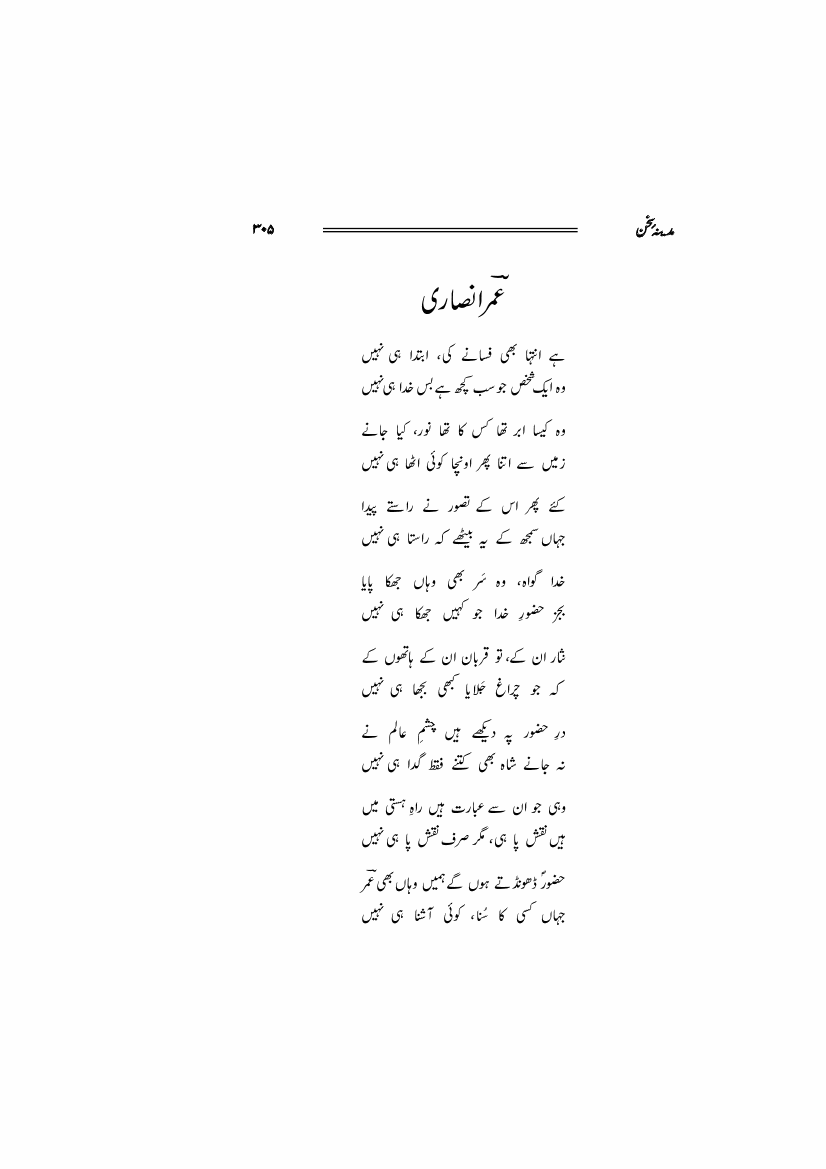 مدینۂ سخن ۳۰۵
عمرؔ انصاری
ہے انتہا بھی فسانے کی، ابتدا ہی نہیں
وہ ایک شخص جو سب کچھ ہے بس خدا ہی نہیں
وہ کیسا ابر تھا کس کا تھا نور، کیا جانے
زمیں سے اتنا پھر اونچا کوئی اٹھا ہی نہیں
کئے پھر اس کے تصور نے راستے پیدا
جہاں سمجھ کے یہ بیٹھے کہ راستا ہی نہیں
خدا گواہ، وہ سَر بھی وہاں جھکا پایا
بجز حضورِ خدا جو کہیں جھکا ہی نہیں
نثار ان کے، تو قربان ان کے ہاتھوں کے
کہ جو چراغ جَلایا کبھی بجھا ہی نہیں
درِ حضور پہ دیکھے ہیں چشمِ عالم نے
نہ جانے شاہ بھی کتنے فقط گدا ہی نہیں
وہی جو ان سے عبارت ہیں راہِ ہستی میں
ہیں نقش پا ہی، مگر صرف نقش پا ہی نہیں
حضورؐ ڈھونڈتے ہوں گے ہمیں وہاں بھی عمرؔ
جہاں کسی کا سُنا، کوئی آشنا ہی نہیں